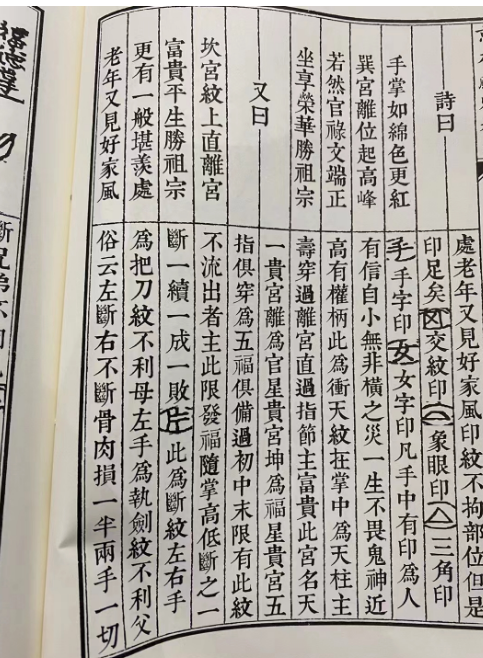 詩曰
手掌如綿色更紅
巽宮離位起高峰
若然官祿文端正
坐享榮華勝祖宗
又曰
坎宮紋上直離宮
富貴平生勝祖宗
更有一般堪羨處
老年又見好家風
處老年又見好家風印紋不拘部位但是
印足矣交紋印象眼印三角印
手手字印女女字印凡手中有印為人
有信自小無非橫之災一生不畏鬼神近
高有權柄此為衝天紋在掌中為天柱主
壽穿過離宮直過指節主富貴此宮名天
一貴宮離為官星貴宮坤為福星貴宮五
指俱穿為五福俱備過初中末限有此紋
不流出者主此限發福隨掌高低斷之一
斷一續一成一敗此為斷紋左右手
為把刀紋不利母左手為執劍紋不利父
俗云左斷右不斷骨肉損一半兩手一切